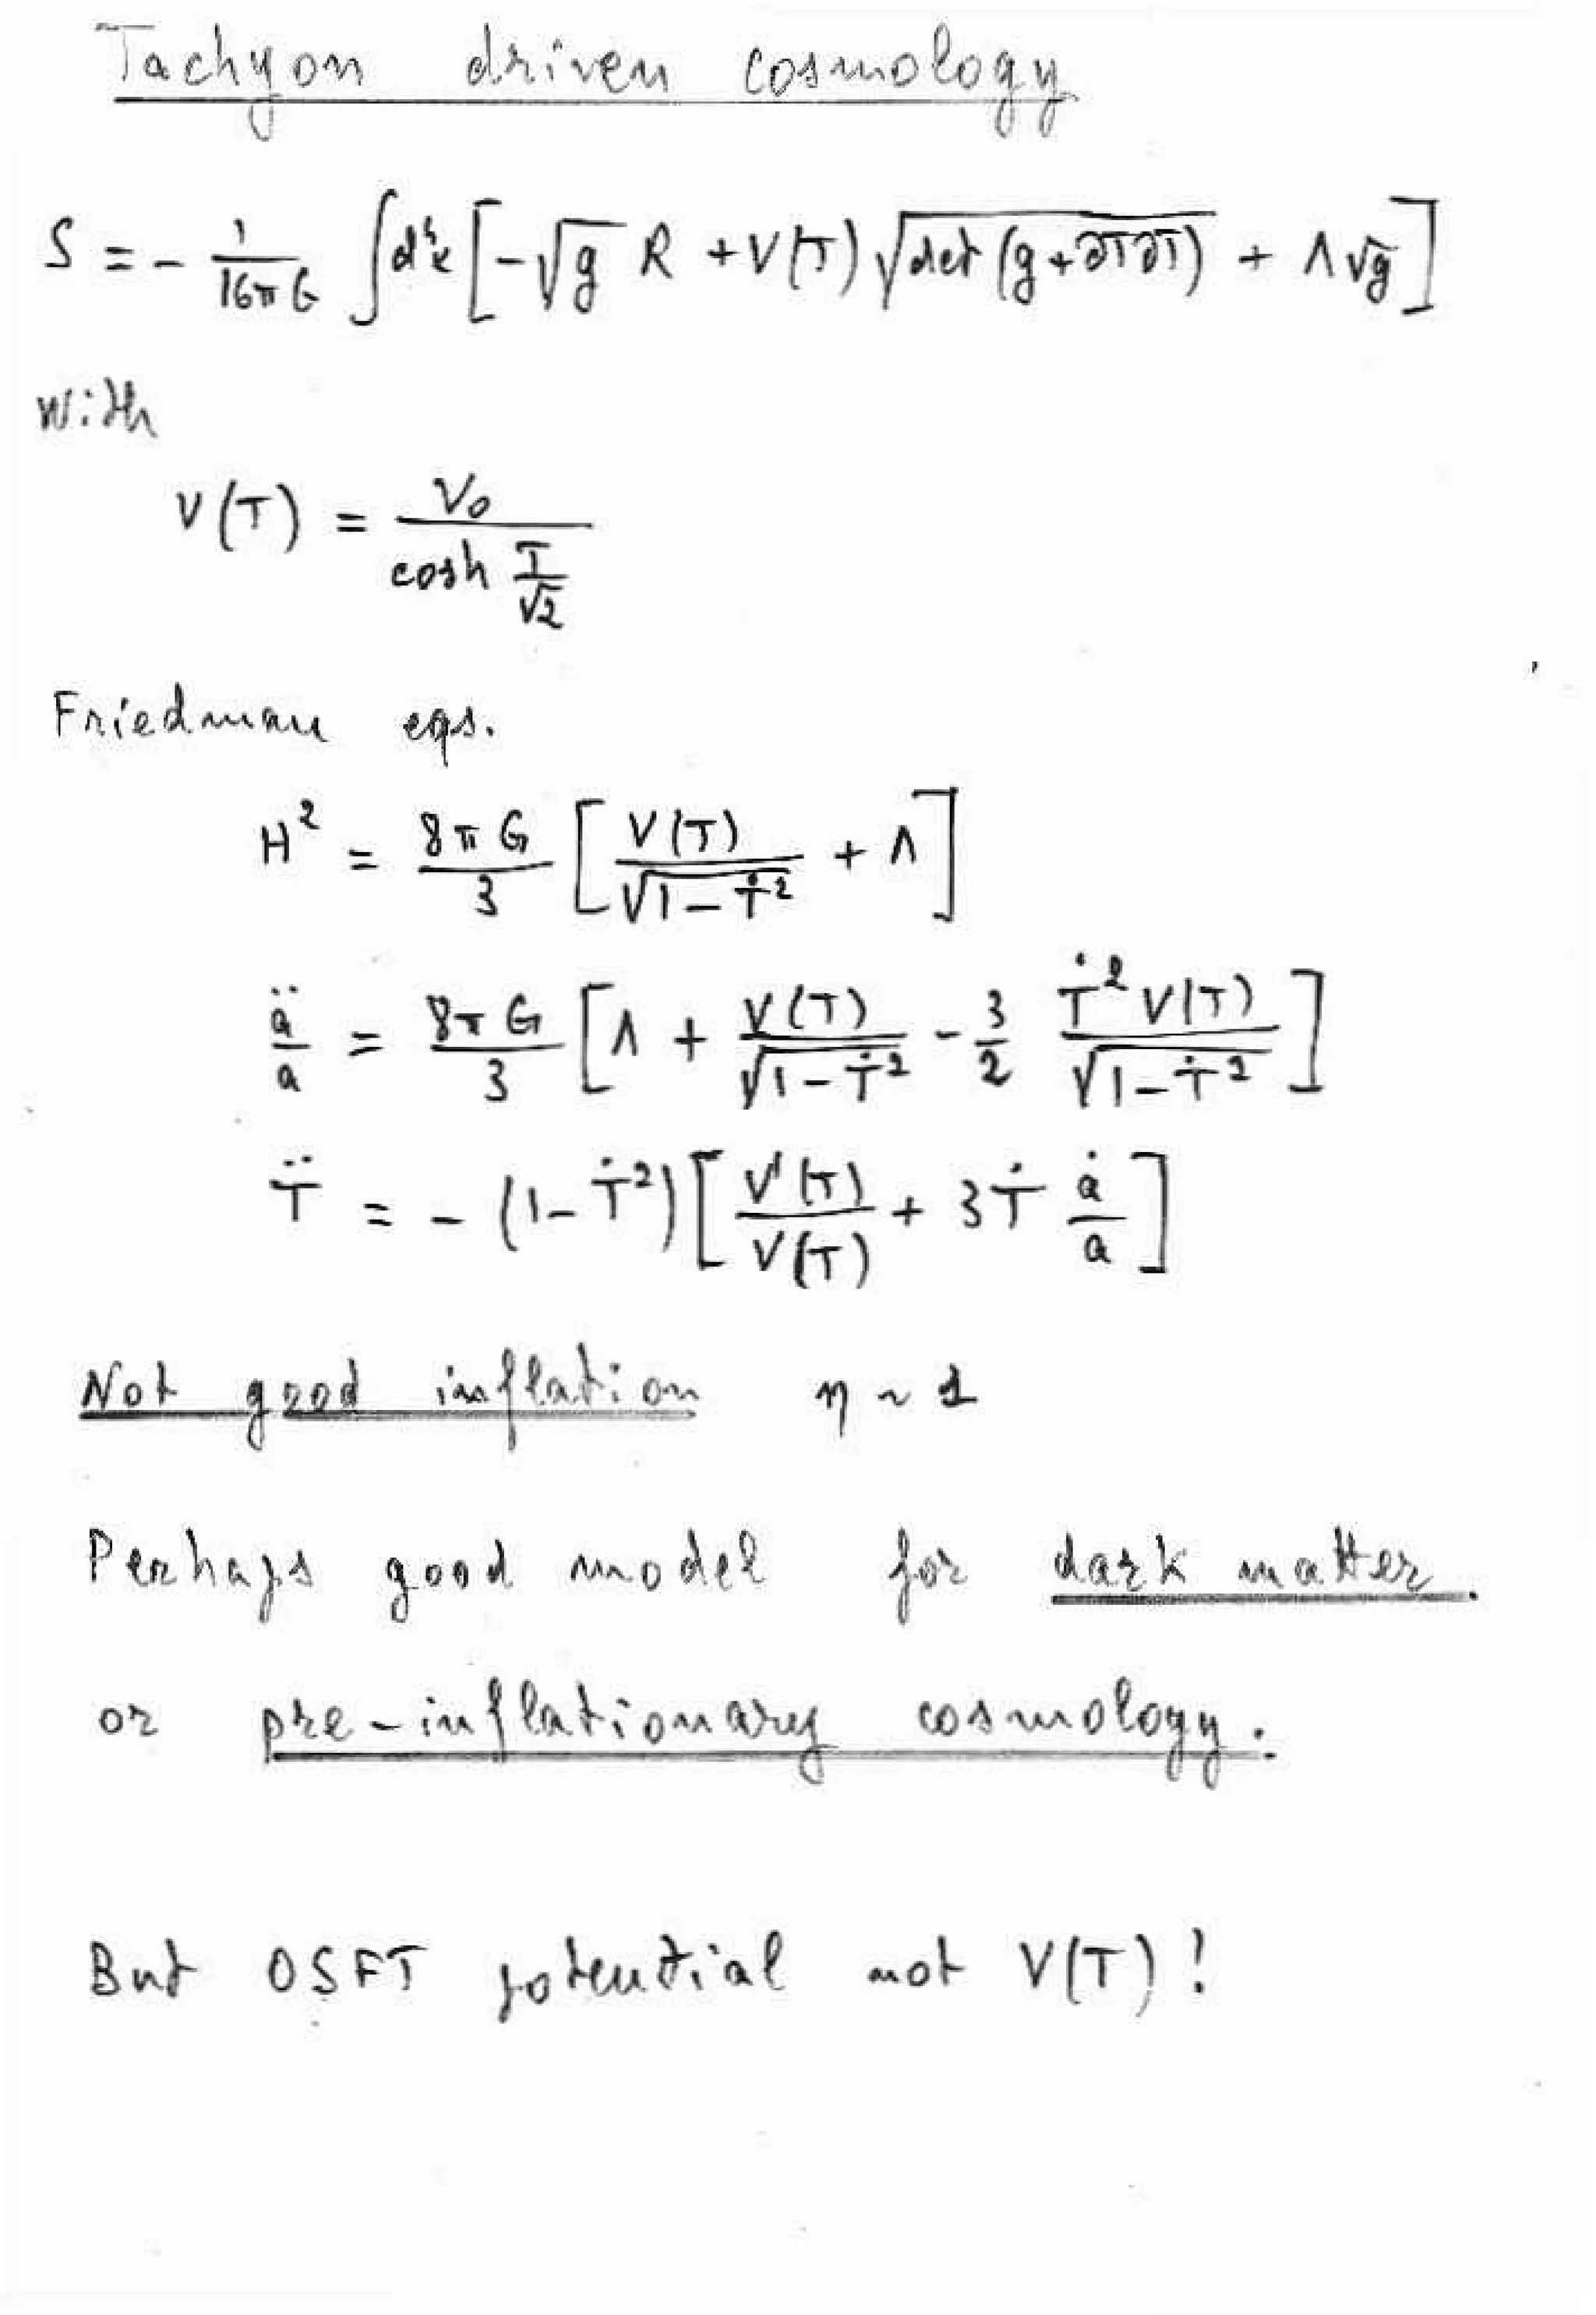 Tachyon driven cosmology
S = - 1/(16πG) ∫d⁴x [ -√g R + V(T) √(det(g+∂T∂T)) + Λ√g ]
With
V(T) = V₀ / cosh (T/√2)
Friedman eqs.
H² = 8πG/3 [ V(T)/√(1-Ṫ²) + Λ ]
ä/a = 8πG/3 [ Λ + V(T)/√(1-Ṫ²) - 3/2 Ṫ² V(T)/√(1-Ṫ²) ]
T̈ = - (1-Ṫ²) [ V'(T)/V(T) + 3Ṫ ȧ/a ]
Not good inflation η ~ 1
Perhaps good model for dark matter.
or pre-inflationary cosmology.
But OSFT potential not V(T)!